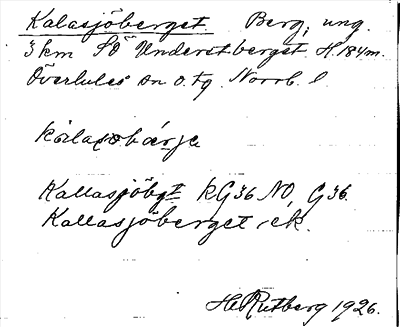 Kalasjöberget. Berg, ung.
3 km SO Understberget. H. 184 m.
Överluleå sn o. tg. Norrb. l
kalasobärje
Kallasjöbgt kG36 NO, G36.
Kallasjöberget, ek.
H Rutberg 1926.